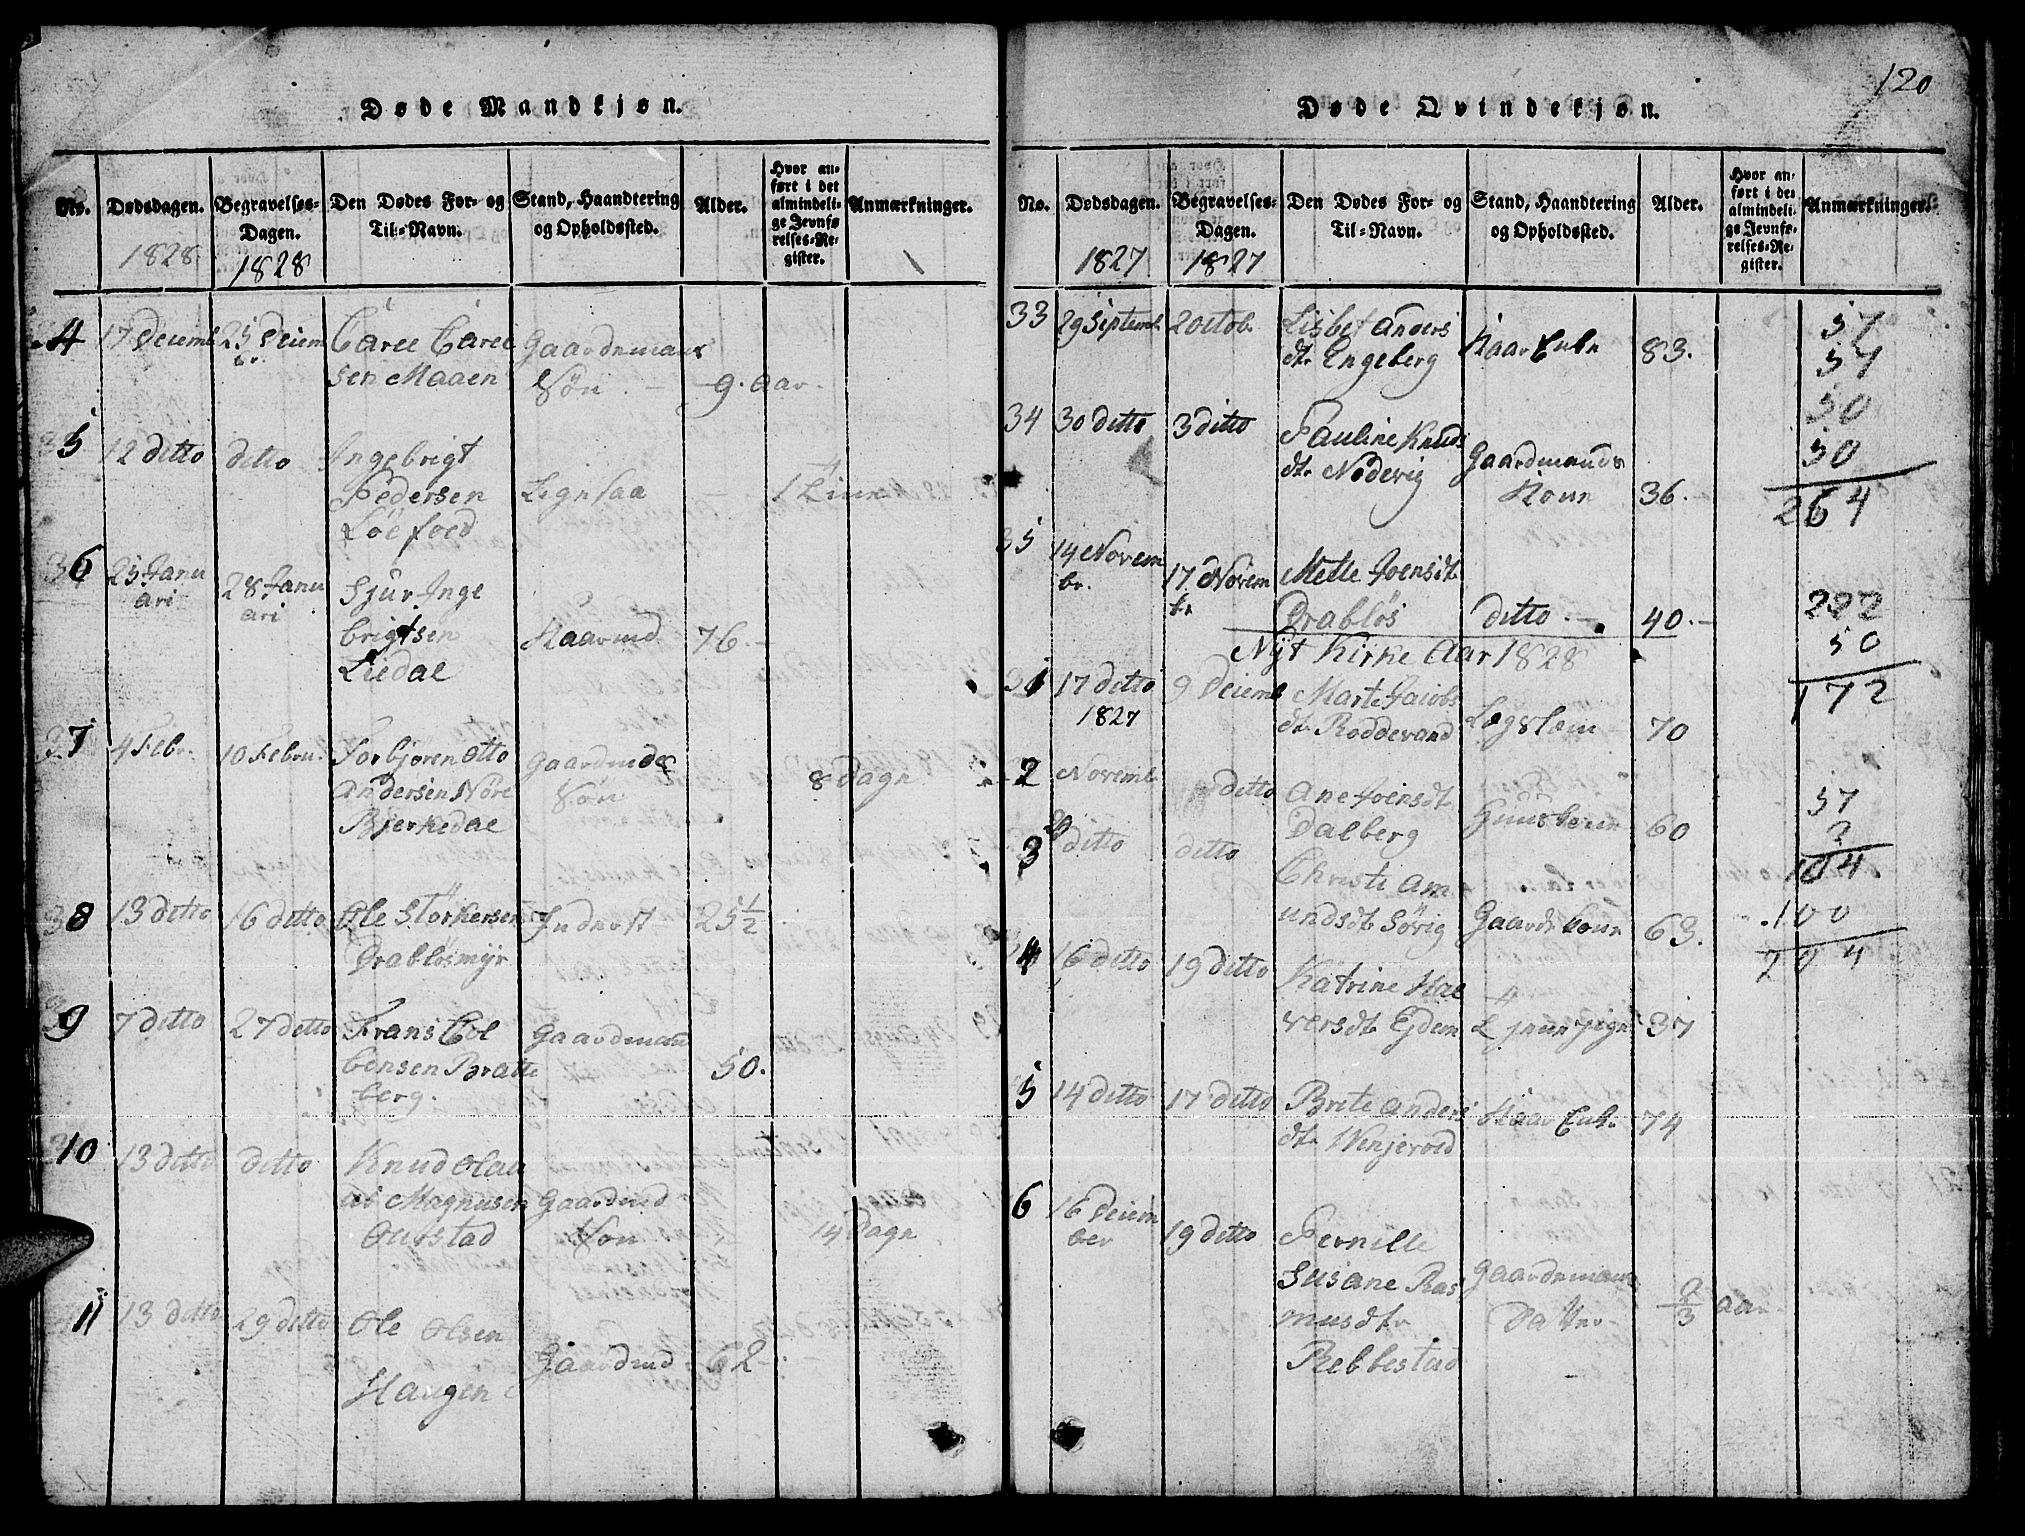 120
Døde Mandkjøn.
No.
Dødsdagen.
1828
Begravelses-
Dagen.
1828
Den Dødes For- og
Til-Navn.
Stand, Haandtering
og Opholdssted.
Alder.
Hvor an-
ført i det
almindeli-
ge Jevnfø
relses-Re-
gister.
Anmærkninger.
4
17 Deieml
25 Deiem
br.
Caree Caree
sen Maaen
Gaardemans
Søn
9. aar.
5
12 ditto
ditto
Ingebrigt
Pedersen
Løefoed
Lignsaa
6
25 Janu
ari
28 Janu
ari
Sjur Inge
brigtsen
Liedal
Kaarmd
76.
7
4 Febr.
10 Febru.
Torbjøren Otto
Andersen Nøre
Bjerkedal
Gaardmds
Søn
8 Dage
8
13 ditto
16 ditto
Ole Størkersen
Drabløsmyr
Inderst
25 1/2
9
7 ditto
27 ditto
Frans Col
bensen Bratte
berg.
Gaardman
50.
10
13 ditto
ditto
Knud Olau
us Magnusen
Oufstad
Gaardmd
Søn
14 Dage
11
13 ditto
29 ditto
Ole Olsen
Haugen
Gaardmd
62
Døde Qvindekjøn.
No.
Dødsdagen.
1827
Begravelses-
Dagen.
1827
Den Dødes For- og
Til-Navn.
Stand, Haandtering
og Opholdssted.
Alder.
Hvor an-
ført i det
almindeli-
ge Jevnfø-
relses-Re-
gister.
Anmærkninger.
33
29 Septeml.
2 Octob.
Lisbet Anders
dtr Engeberg
Kaar Enke
83.
34
30 ditto
3 ditto
Pauline Knuds
dtr Noderig
Gaardmands
Kone
36.
35
14 Novem
br.
17 Novem
br
Mette Joensdt
Drabløs
ditto
40.
Nyt Kirke Aar 1828
1
17 ditto
1827
9 Deieml
Marte Jacobs
dtr Roddevand
Legslem
70
2
Noveml
ditto
Ane Joensdt
Dalberg
60
3
ditto
ditto
Christi Am
undsdt Sørig
Gaardkone
63.
4
16 ditto
19 ditto
Katrine Hal
versdt Ejdem
37
5
14 ditto
17 ditto
Brite Anders
dtr Wenjevold
Kaar Enk.
74
6
16 Deiem
ber
19 ditto
Pernille
Susane Ras
musdtr
Rebbestad
Gaardemans
Datter
2/3 aar
57
57
50
50
264
222
50
172
57
2
104
100
204